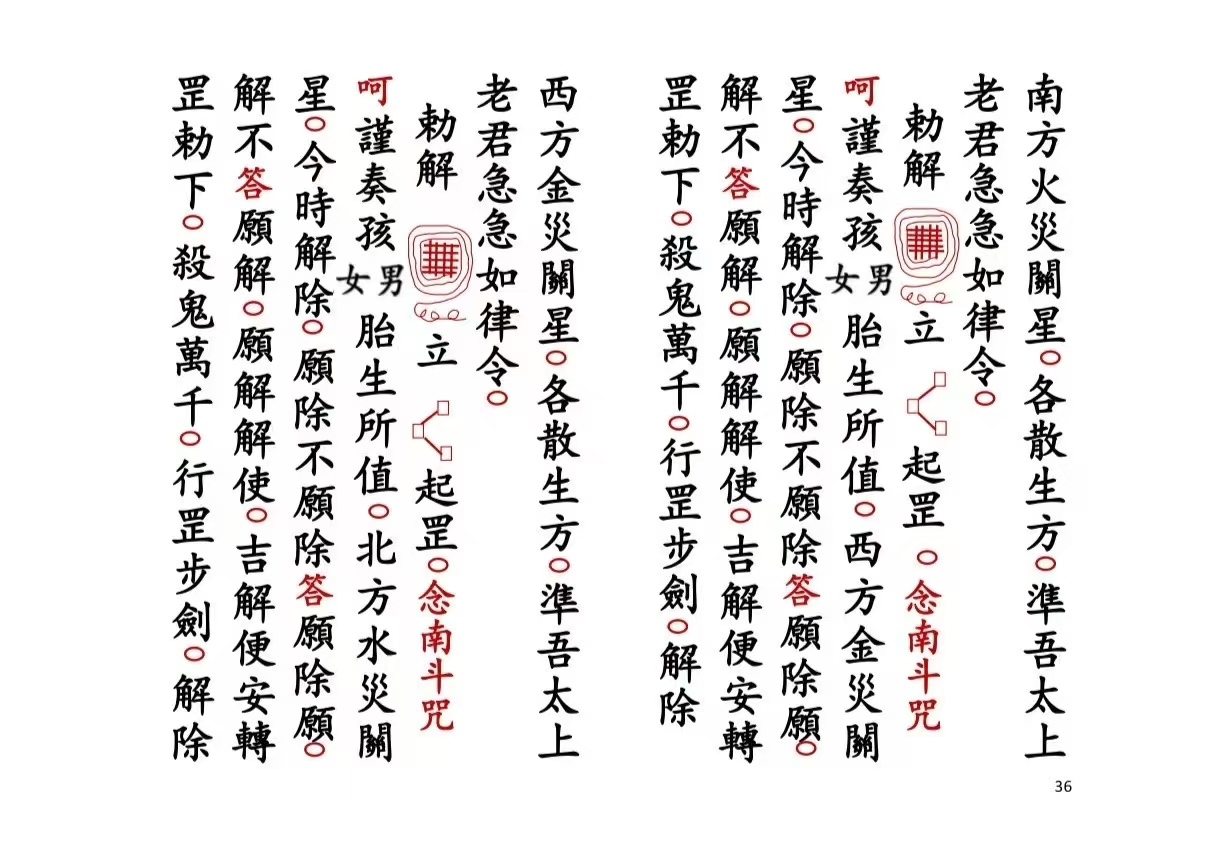 南方火災關星○各散生方○準吾太上
老君急急如律令○
勅解 立 起罡○念南斗咒
呵謹奏孩男女胎生所值○西方金災關
星○今時解除○願除不願除答願除願○
解不答願解○願解解使○吉解便安轉
罡勅下○殺鬼萬千○行罡步劍○解除
西方金災關星○各散生方○準吾太上
老君急急如律令○
勅解 立 起罡○念南斗咒
呵謹奏孩男女胎生所值○北方水災關
星○今時解除○願除不願除答願除願○
解不答願解○願解解使○吉解便安轉
罡勅下○殺鬼萬千○行罡步劍○解除
36